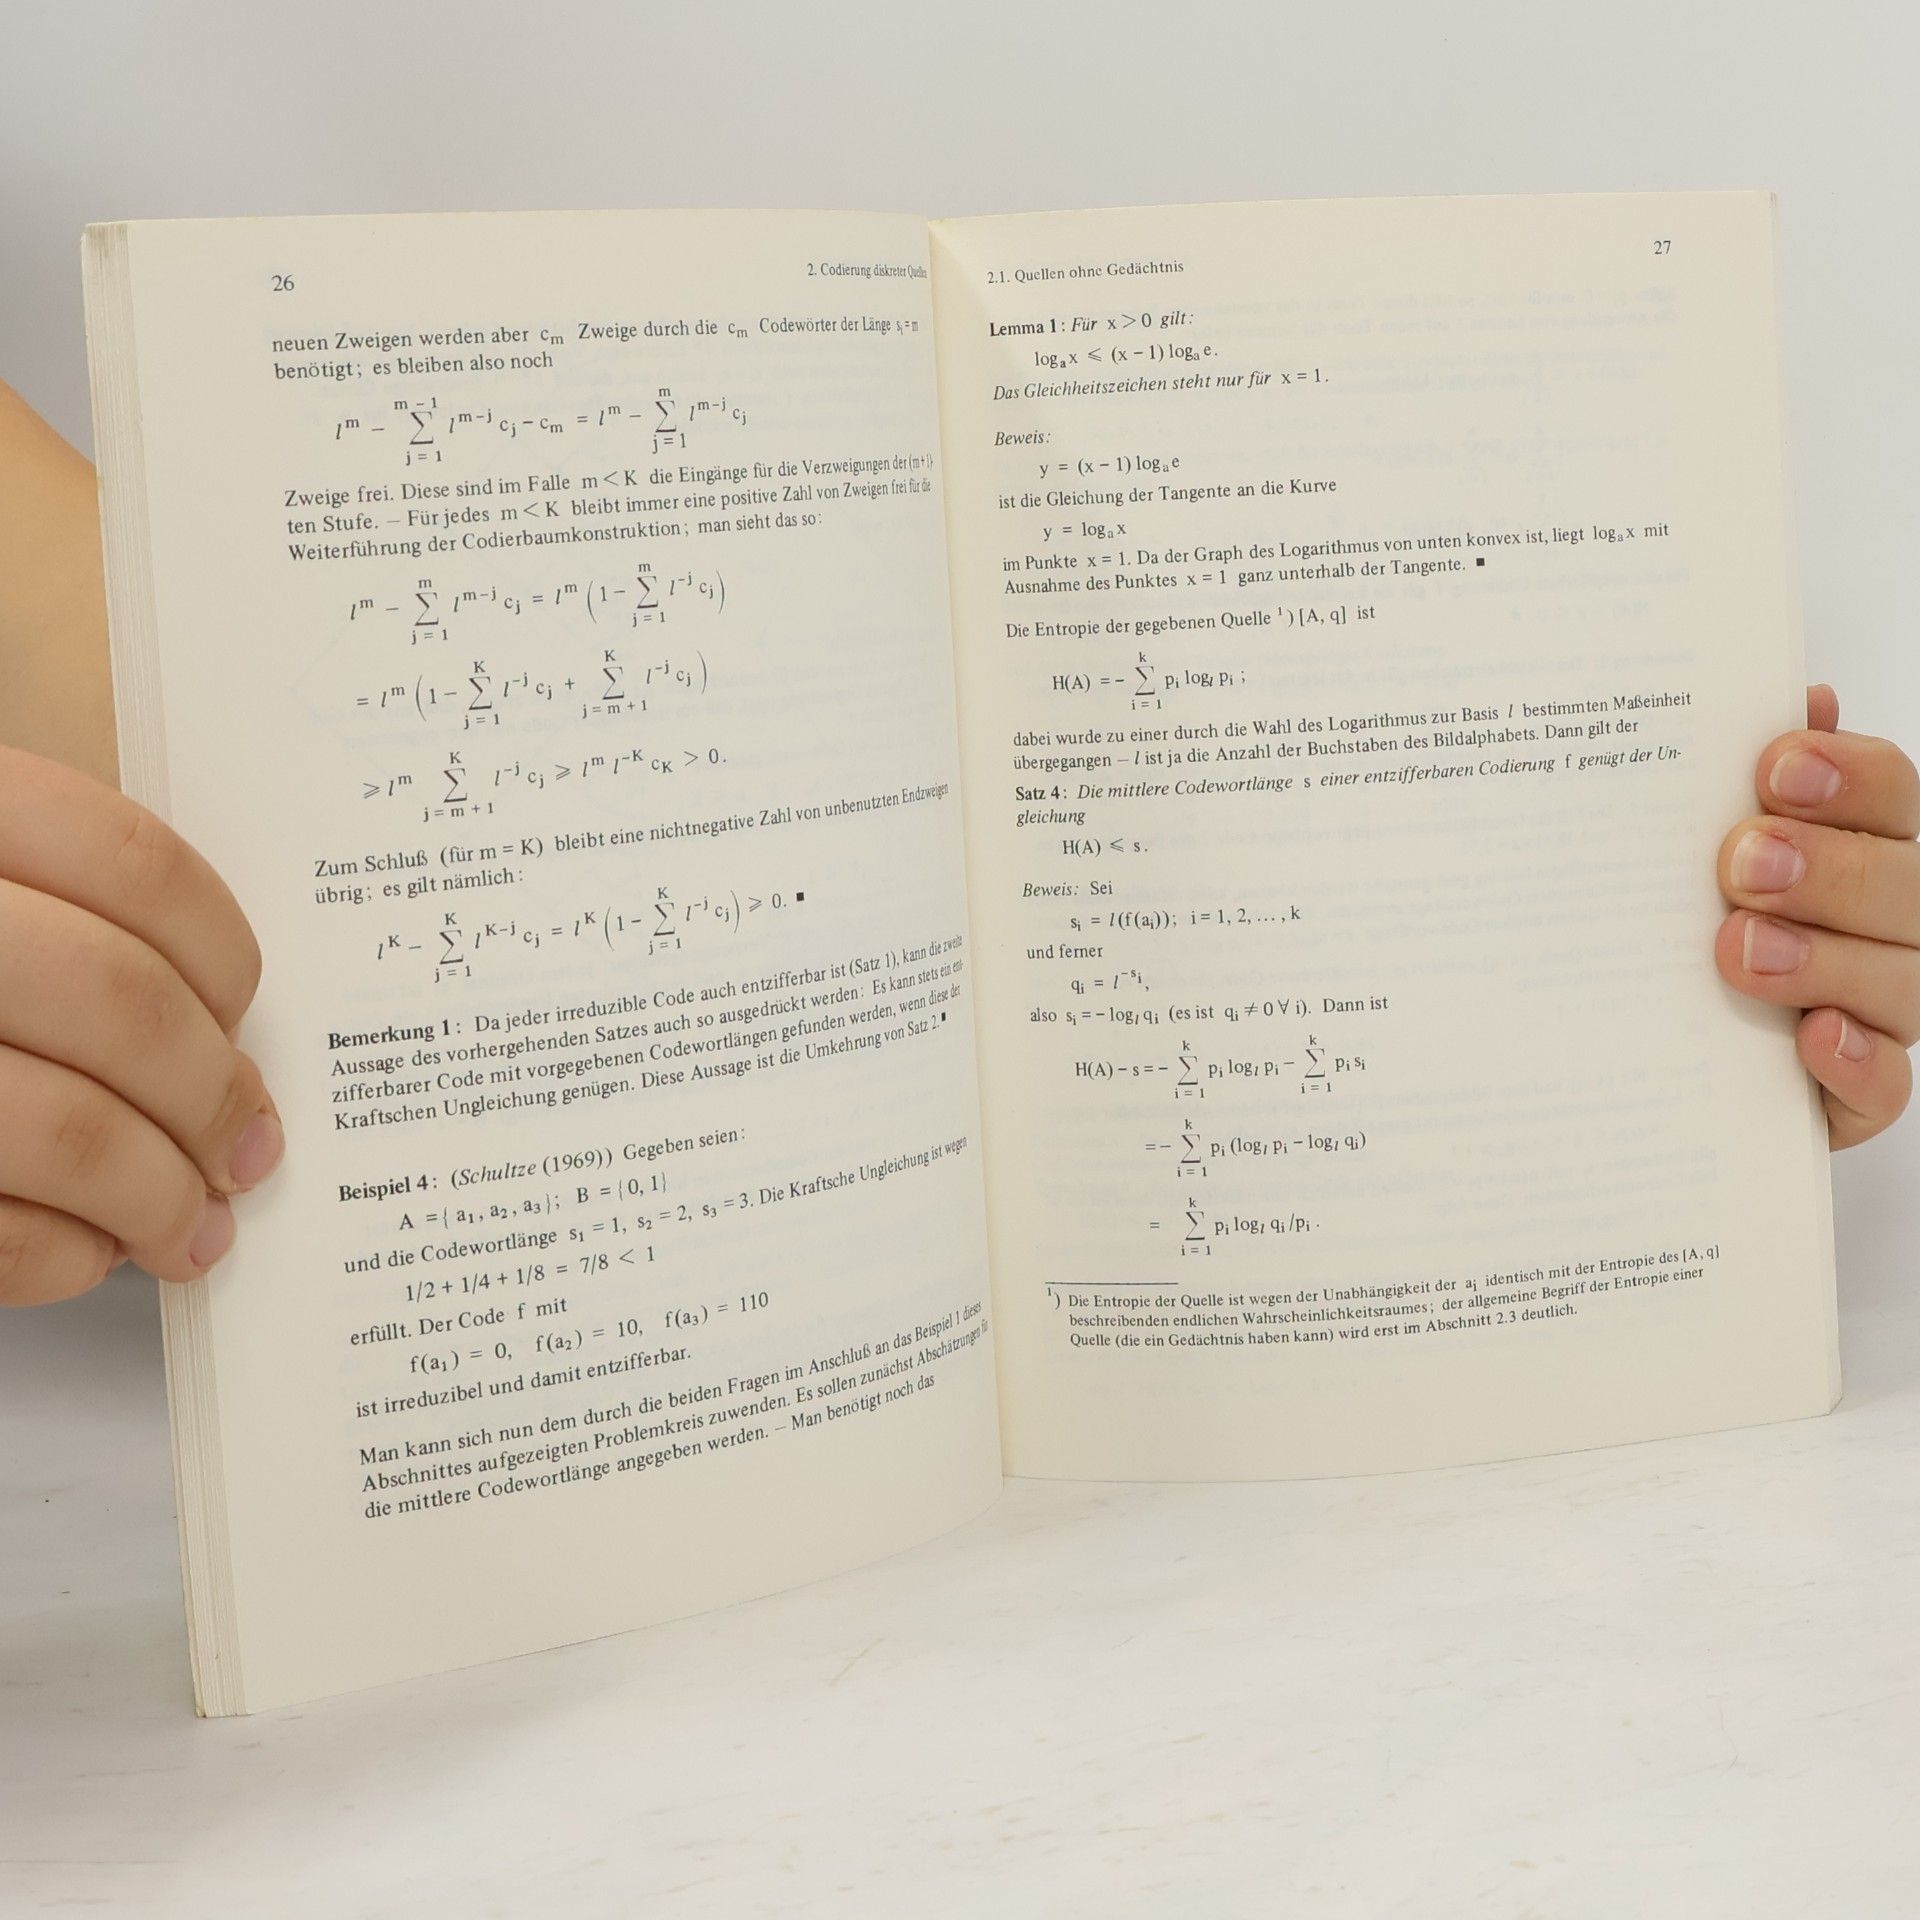 26
2. Codierung diskreter Quellen
neuen Zweigen werden aber cₘ Zweige durch die cₘ Codewörter der Länge sᵢ = m
benötigt; es bleiben also noch
lᵐ − ∑_{j = 1}^{m − 1} l^{m−j} cⱼ − cₘ = lᵐ − ∑_{j = 1}^{m} l^{m−j} cⱼ
Zweige frei. Diese sind im Falle m < K die Eingänge für die Verzweigungen der (m+1)-
ten Stufe. – Für jedes m < K bleibt immer eine positive Zahl von Zweigen frei für die
Weiterführung der Codierbaumkonstruktion; man sieht das so:
lᵐ − ∑_{j = 1}^{m} l^{m−j} cⱼ = lᵐ (1 − ∑_{j = 1}^{m} l^{−j} cⱼ)
= lᵐ (1 − ∑_{j = 1}^{K} l^{−j} cⱼ + ∑_{j = m + 1}^{K} l^{−j} cⱼ)
⩾ lᵐ ∑_{j = m + 1}^{K} l^{−j} cⱼ ⩾ lᵐ l^{−K} c_K > 0.
Zum Schluß (für m = K) bleibt eine nichtnegative Zahl von unbenutzten Endzweigen
übrig; es gilt nämlich:
l^K − ∑_{j = 1}^{K} l^{K−j} cⱼ = l^K (1 − ∑_{j = 1}^{K} l^{−j} cⱼ) ⩾ 0. ■
Bemerkung 1: Da jeder irreduzible Code auch entzifferbar ist (Satz 1), kann die zweite
Aussage des vorhergehenden Satzes auch so ausgedrückt werden: Es kann stets ein ent-
zifferbarer Code mit vorgegebenen Codewortlängen gefunden werden, wenn diese der
Kraftschen Ungleichung genügen. Diese Aussage ist die Umkehrung von Satz 2. ■
Beispiel 4: (Schultze (1969)) Gegeben seien:
A = { a₁, a₂, a₃ }; B = {0, 1}
und die Codewortlänge s₁ = 1, s₂ = 2, s₃ = 3. Die Kraftsche Ungleichung ist wegen
1/2 + 1/4 + 1/8 = 7/8 < 1
erfüllt. Der Code f mit
f(a₁) = 0, f(a₂) = 10, f(a₃) = 110
ist irreduzibel und damit entzifferbar.
Man kann sich nun dem durch die beiden Fragen im Anschluß an das Beispiel 1 dieses
Abschnittes aufgezeigten Problemkreis zuwenden. Es sollen zunächst Abschätzungen für
die mittlere Codewortlänge angegeben werden. – Man benötigt noch das
2.1. Quellen ohne Gedächtnis
27
Lemma 1: Für x > 0 gilt:
logₐ x ⩽ (x − 1) logₐ e.
Das Gleichheitszeichen steht nur für x = 1.
Beweis:
y = (x − 1) logₐ e
ist die Gleichung der Tangente an die Kurve
y = logₐ x
im Punkte x = 1. Da der Graph des Logarithmus von unten konvex ist, liegt logₐ x mit
Ausnahme des Punktes x = 1 ganz unterhalb der Tangente. ■
Die Entropie der gegebenen Quelle ¹) [A, q] ist
H(A) = − ∑_{i = 1}^{k} pᵢ log_l pᵢ ;
dabei wurde zu einer durch die Wahl des Logarithmus zur Basis l bestimmten Maßeinheit
übergegangen – l ist ja die Anzahl der Buchstaben des Bildalphabets. Dann gilt der
Satz 4: Die mittlere Codewortlänge s einer entzifferbaren Codierung f genügt der Un-
gleichung
H(A) ⩽ s.
Beweis: Sei
sᵢ = l(f(aᵢ)); i = 1, 2, ..., k
und ferner
qᵢ = l^{−sᵢ},
also sᵢ = − log_l qᵢ (es ist qᵢ ≠ 0 ∀ i). Dann ist
H(A) − s = − ∑_{i = 1}^{k} pᵢ log_l pᵢ − ∑_{i = 1}^{k} pᵢ sᵢ
= − ∑_{i = 1}^{k} pᵢ (log_l pᵢ − log_l qᵢ)
= ∑_{i = 1}^{k} pᵢ log_l qᵢ/pᵢ .
¹) Die Entropie der Quelle ist wegen der Unabhängigkeit der aⱼ identisch mit der Entropie des [A, q]
beschreibenden endlichen Wahrscheinlichkeitsraumes; der allgemeine Begriff der Entropie einer
Quelle (die ein Gedächtnis haben kann) wird erst im Abschnitt 2.3 deutlich.